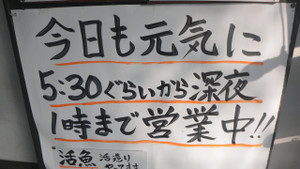 今日も元気に
5:30ぐらいから深夜
1時まで営業中!!
活魚 活造り
やってます